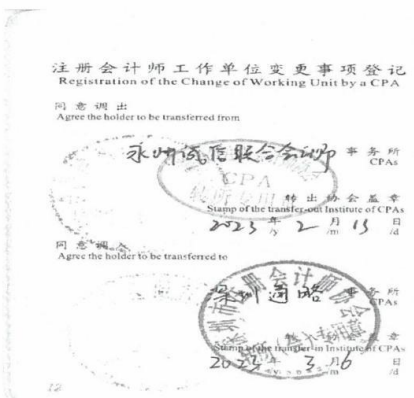 注册会计师工作单位变更事项登记
Registration of the Change of Working Unit by a CPA
同意调出
Agree the holder to be transferred from
永州诚信联合会计师 事务所
CPAs
CPA
转出协会盖章
Stamp of the transfer-out Institute of CPAs
2023 年 2 月 13 日
/y /m /d
同意调入
Agree the holder to be transferred to
深圳通略 事务所
CPAs
Stamp of the transfer-in Institute of CPAs
2023 年 3 月 6 日
/y /m /d
12